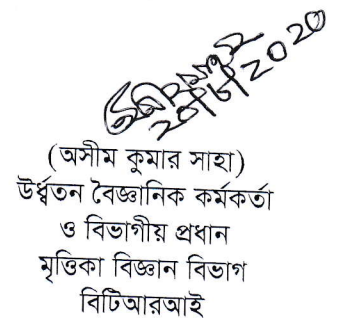 (অসীম কুমার সাহা)
উর্ধ্বতন বৈজ্ঞানিক কর্মকর্তা
ও বিভাগীয় প্রধান
মৃত্তিকা বিজ্ঞান বিভাগ
বিটিআরআই